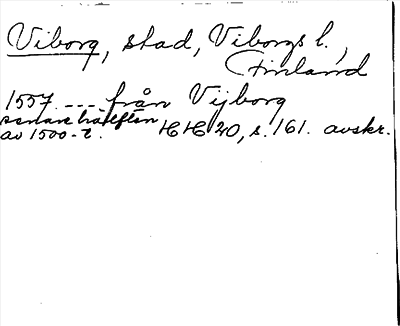 Viborg, stad, Viborgs l.,
Finland
1557 ---- från Vijborg
senare hälften
av 1500-t. HH 20, s. 161. avskr.